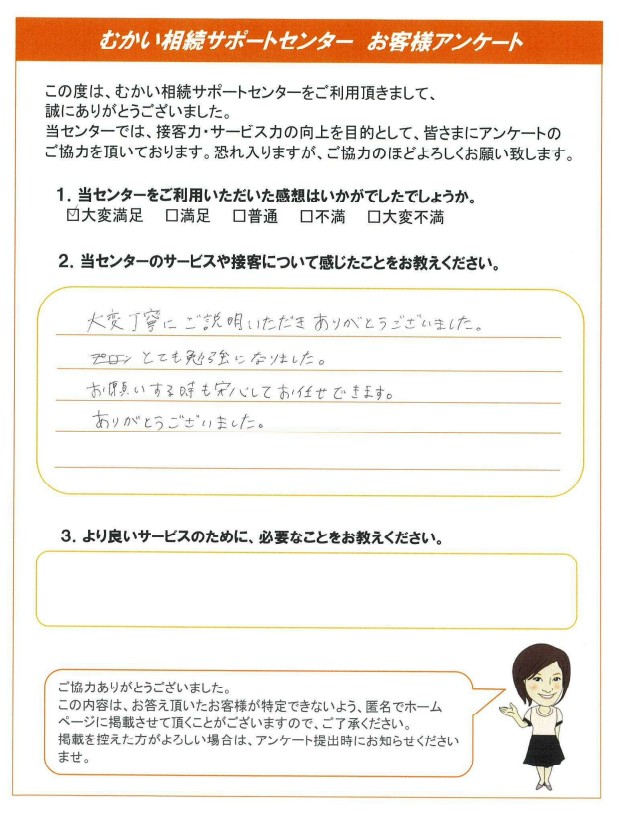 むかい相続サポートセンター お客様アンケート
この度は、むかい相続サポートセンターをご利用頂きまして、
誠にありがとうございました。
当センターでは、接客力・サービス力の向上を目的として、皆さまにアンケートの
ご協力を頂いております。恐れ入りますが、ご協力のほどよろしくお願い致します。
1．当センターをご利用いただいた感想はいかがでしたでしょうか。
☑大変満足 □満足 □普通 □不満 □大変不満
2．当センターのサービスや接客について感じたことをお教えください。
大変丁寧にご説明いただきありがとうございました。
とても勉強になりました。
お願いする時も安心してお任せできます。
ありがとうございました。
3．より良いサービスのために、必要なことをお教えください。
ご協力ありがとうございました。
この内容は、お答え頂いたお客様が特定できないよう、匿名でホーム
ページに掲載させて頂くことがございますので、ご了承ください。
掲載を控えた方がよろしい場合は、アンケート提出時にお知らせください
ませ。